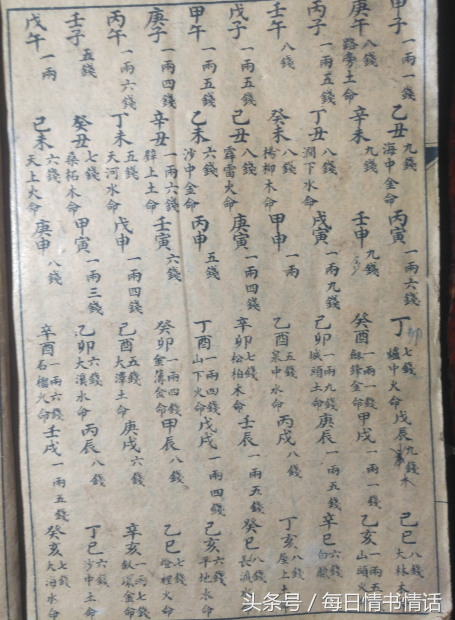 甲子一兩一錢 乙丑九錢海中金命 丙寅一兩六錢 丁卯七錢爐中火命 戊辰九錢木 己巳八錢大林木命
庚午八錢路旁土命 辛未九錢 壬申九錢 癸酉一兩一錢劍鋒金命 甲戌一兩一錢 乙亥一兩五山頭火
丙子一兩五錢 丁丑八錢澗下水命 戊寅一兩九錢 己卯一兩九錢城頭土命 庚辰一兩五錢 辛巳六錢白
壬午八錢 癸未八錢楊柳木命 甲申一兩 乙酉五錢泉中水命 丙戌八錢 丁亥八屋上
戊子一兩五錢 己丑八錢霹雷火命 庚寅一兩四錢 辛卯七錢松柏木命 壬辰一兩五錢 癸巳長
甲午一兩五錢 乙未六錢沙中金命 丙申五錢 丁酉一兩四錢山下火命 戊戌一兩四錢 己亥六錢平地木命
庚子一兩四錢 辛丑一兩六錢壁上土命 壬寅六錢 癸卯一兩四錢金簿金命 甲辰八錢 乙巳七錢燈裡火命
丙午一兩六錢 丁未五錢天河水命 戊申一兩四錢 己酉五錢大澤土命 庚戌六錢 辛亥一兩七錢釵環金命
壬子五錢 癸丑七錢桑柘木命 甲寅一兩三錢 乙卯六錢大溪水命 丙辰八錢 丁巳六錢沙中土命
戊午一兩 己未六錢天上火命 庚申八錢 辛酉一兩六錢石榴火命 壬戌一兩五錢 癸亥七錢大海水命
头条号 / 每日情书情话